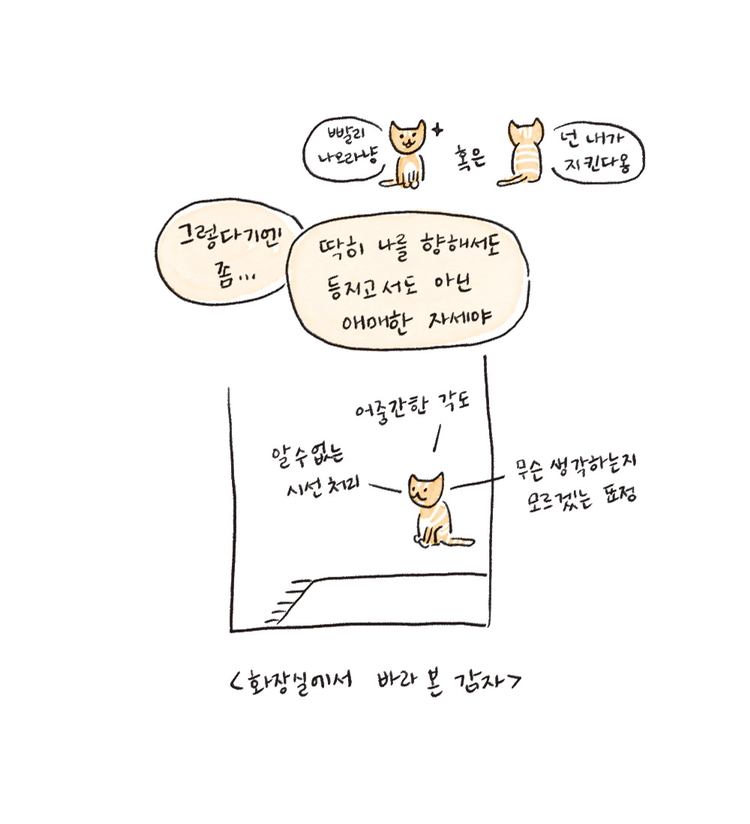 빨리
나오라냥
혹은
넌 내가
지킨다옹
그렇다기엔
좀...
딱히 나를 향해서도
등지고서도 아닌
애매한 자세야
어중간한 각도
알 수 없는
시선 처리
무슨 생각하는지
모르겠는 표정
<화장실에서 바라 본 감자>